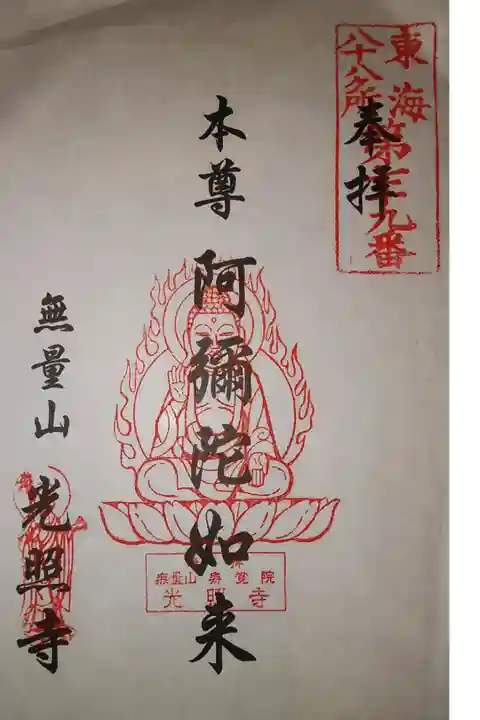 東海
八十八ケ所
第三九番
奉拝
本尊 阿彌陀如来
無量山 壽覚院
光明寺
無量山 光照寺